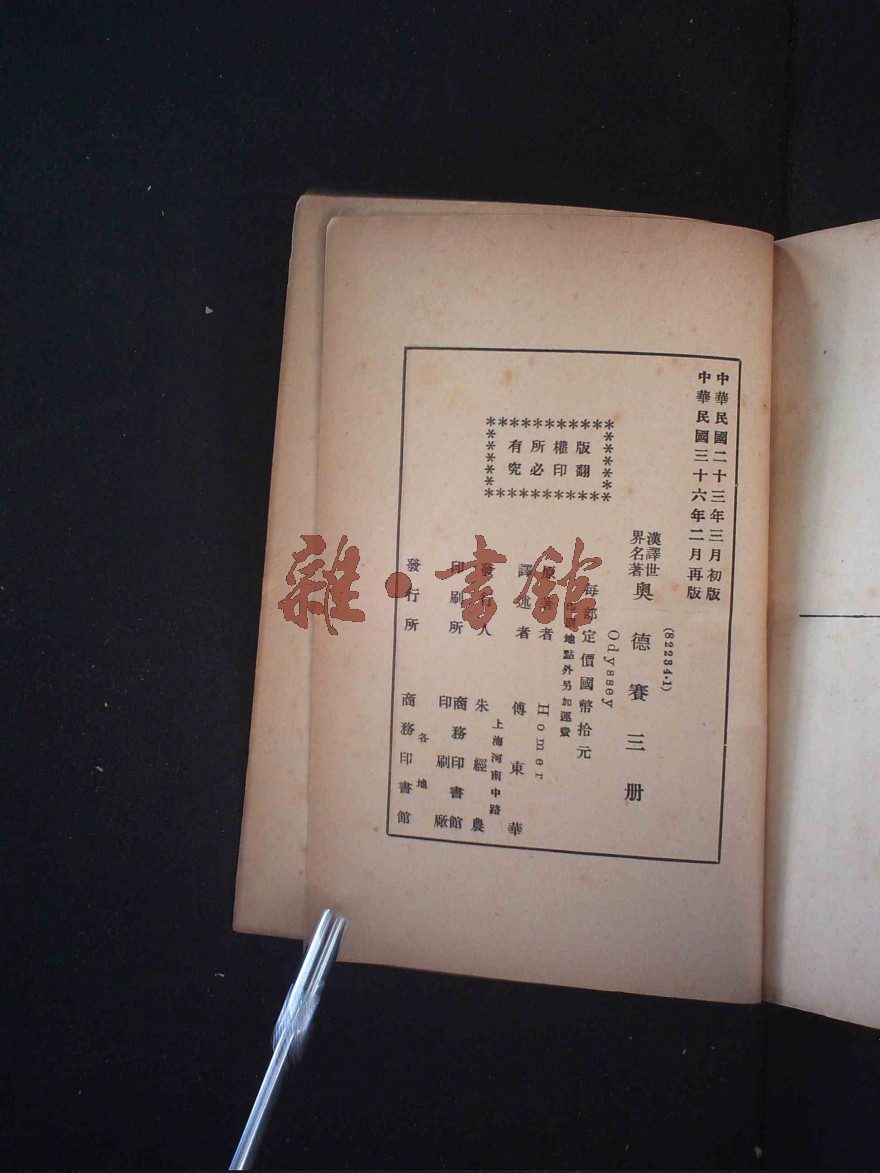 中華民國二十三年三月初版
中華民國三十六年二月再版
(82234·1)
漢譯世界名著 奧德賽三册
Odyssey
每部定價國幣拾元
地點外另加運費
原著者 Homer
譯述者 傅東華
發行人 朱經農
上海河南中路
印刷所 商務印書館印刷廠
發行所 各地商務印書館
版權所有
翻印必究
雜·書館